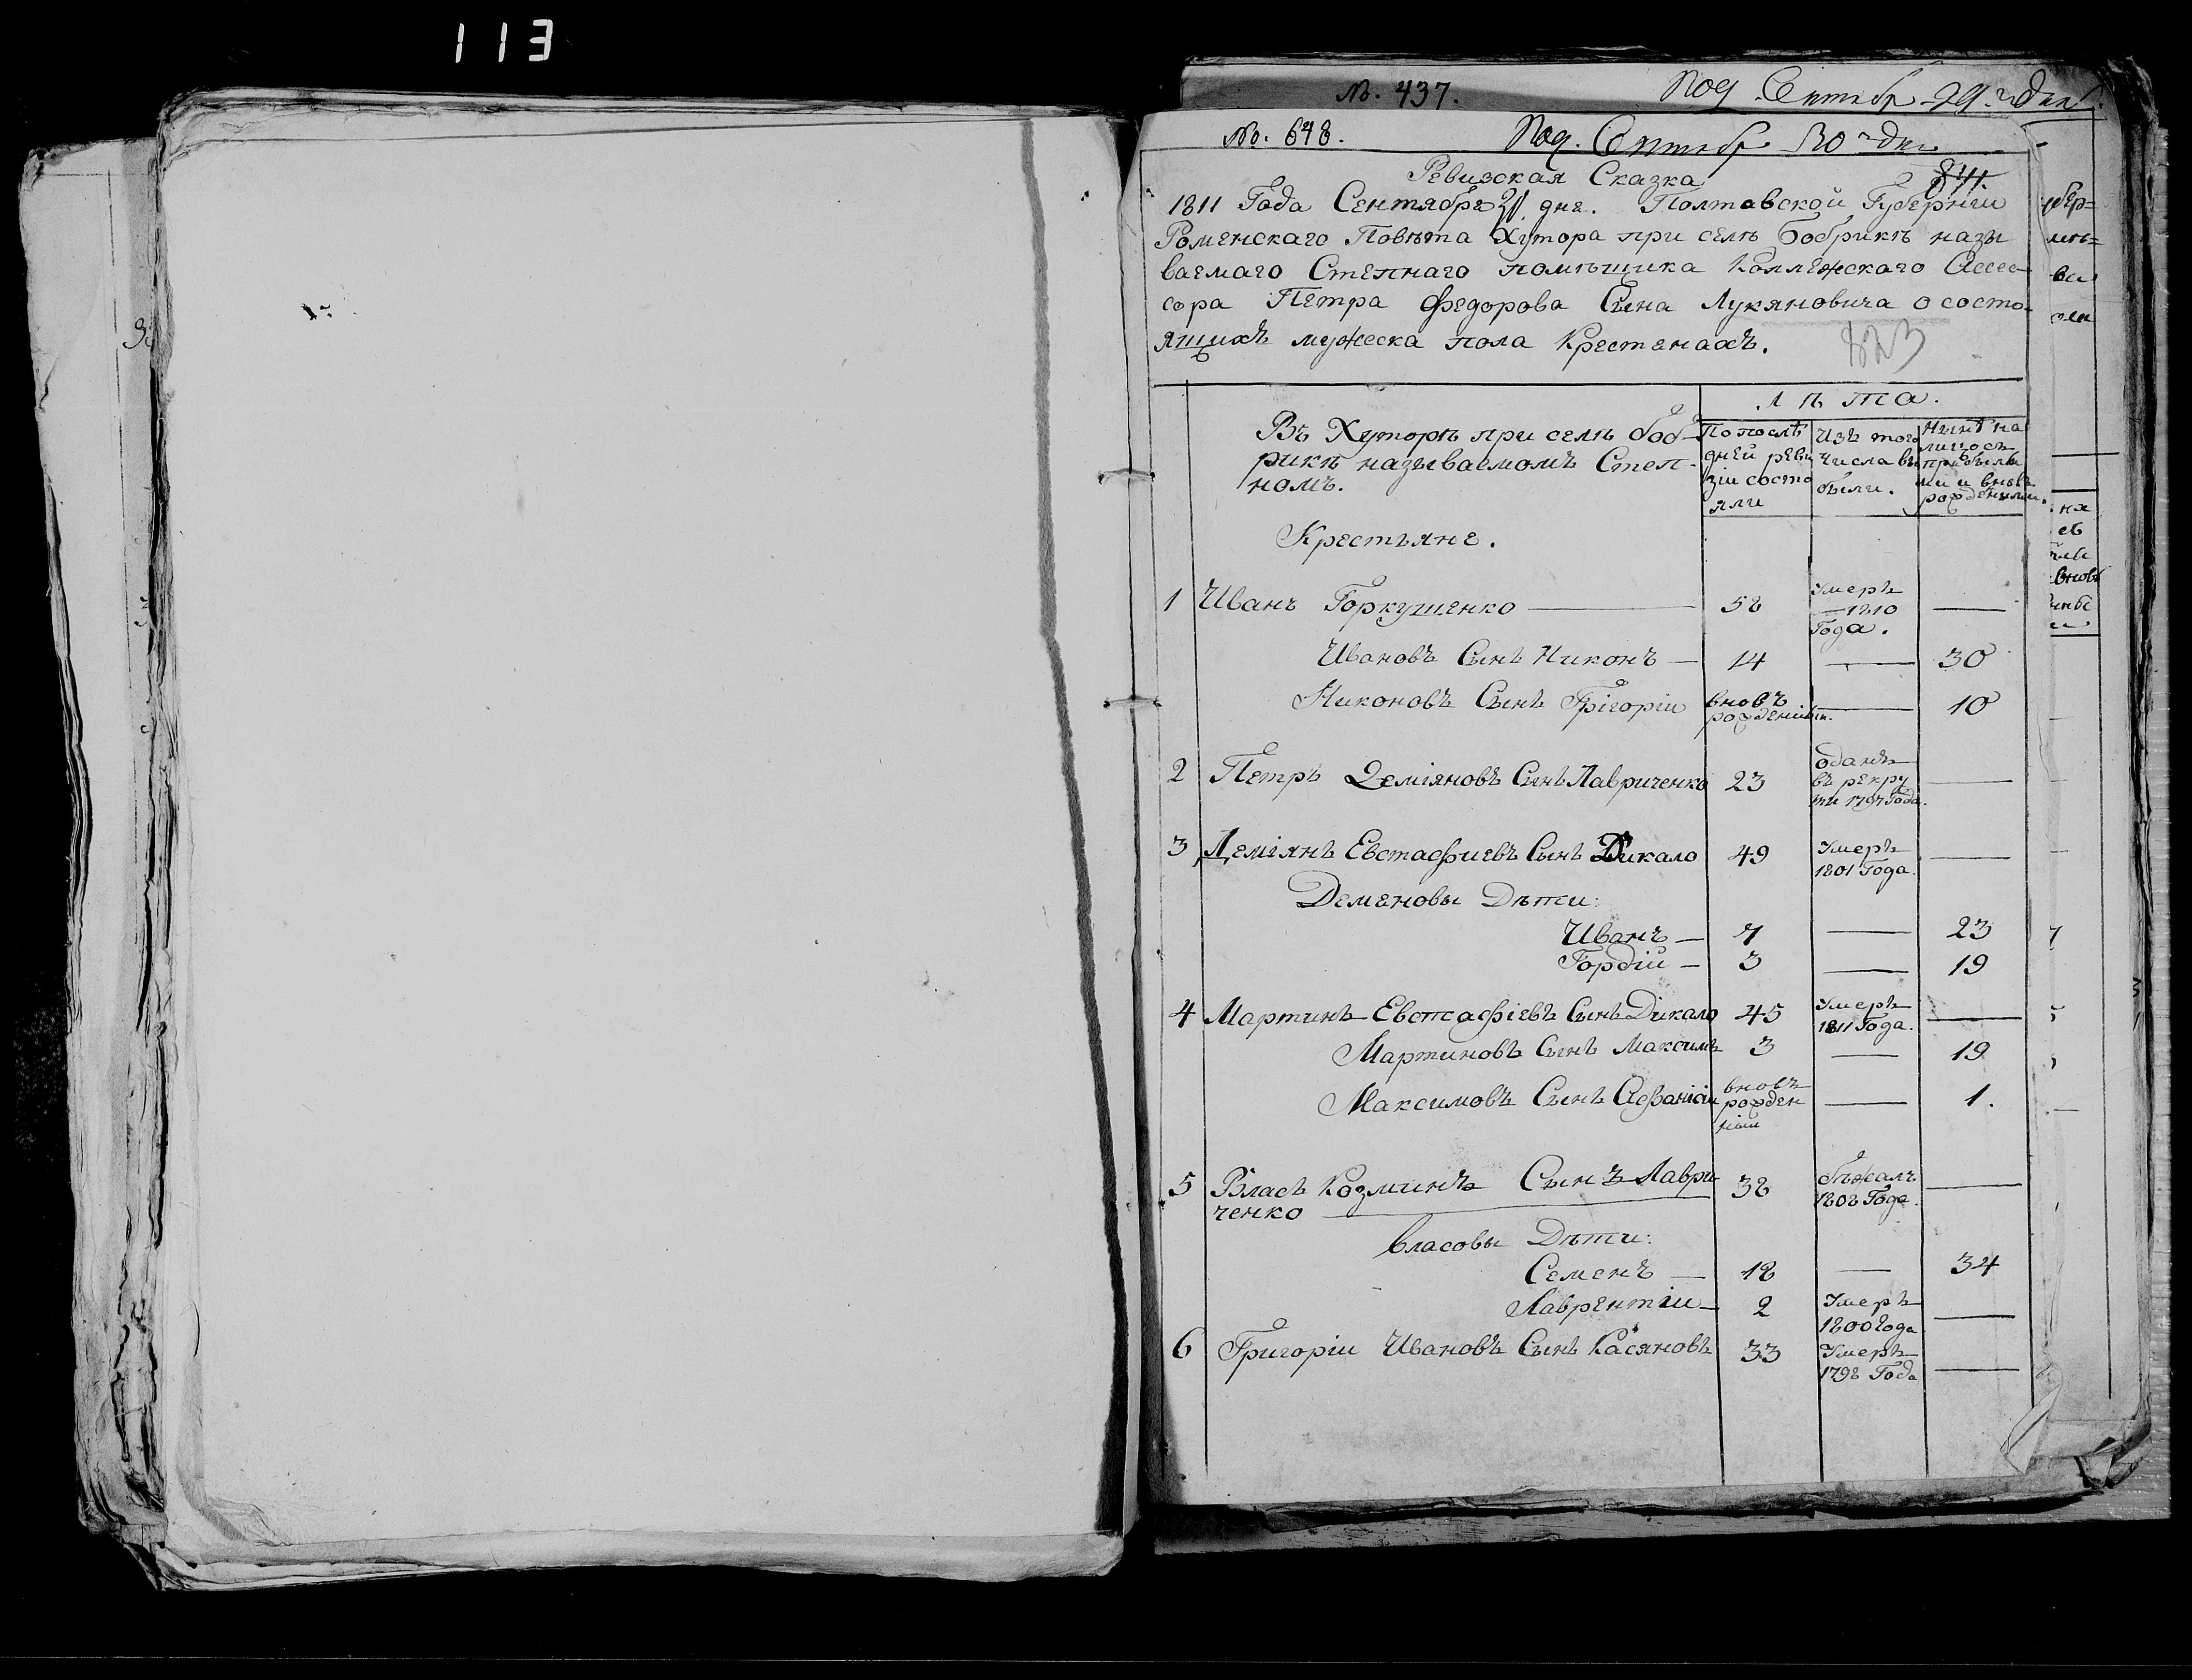 113
№. 437. Под. Сентябр 29.го дня
№. 678. Под. Сентябр 30го дня
Ревизская Сказка
1811 Года Сентября дня. Полтавской Губернии
Роменскаго Повѣта Хутора при селѣ Бобрикѣ назы
ваемаго Степнаго помѣщика Коллежскаго Ассесо
сора Петра Федорова Сына Лукяновича о состо-
ящихъ мужеска пола Крестенахъ.
823
Лѣта.
Въ Хуторѣ при селѣ Боб-
рикѣ называемомъ Степ-
номъ.
По послѣ
дней реви
зіи состо
яли
Изъ того
числа вы
были.
Нынѣ на
лицо съ
прибылы
ми и вновь
рожденними.
Крестьяне.
1 Иванъ Горкушенко — 58 Умеръ 1810 Года. —
Ивановъ Сынъ Никонъ — 14 — 30
Никоновъ Сынъ Григоріи вновъ рожденній — 10
2 Петръ Деміяновъ Сынъ Лавриченко 23 одалъ въ рекру ти 1797 Года. —
3 Деміянъ Евстафиевъ Сынъ Дикало 49 Умеръ 1801 Года. —
Деменовы Дѣти:
Иванъ — 7 — 23
Гордіи — 3 — 19
4 Мартинъ Евстафіевъ Сынъ Дікало 45 Умеръ 1811 Года. —
Мартиновъ Сынъ Максимъ 3 — 19
Максимовъ Сынъ Афанісіи вновъ рожден ніи — 1.
5 Власъ Козминъ Сынъ Лаври- 38 бѣжалъ 1808 Года. —
ченко
Власовы Дѣти:
Семенъ — 18 — 34
Лаврентіи — 2 Умеръ 1800 Года —
6 Григоріи Ивановъ Сынъ Касяновъ 33 Умеръ 1798 Года —